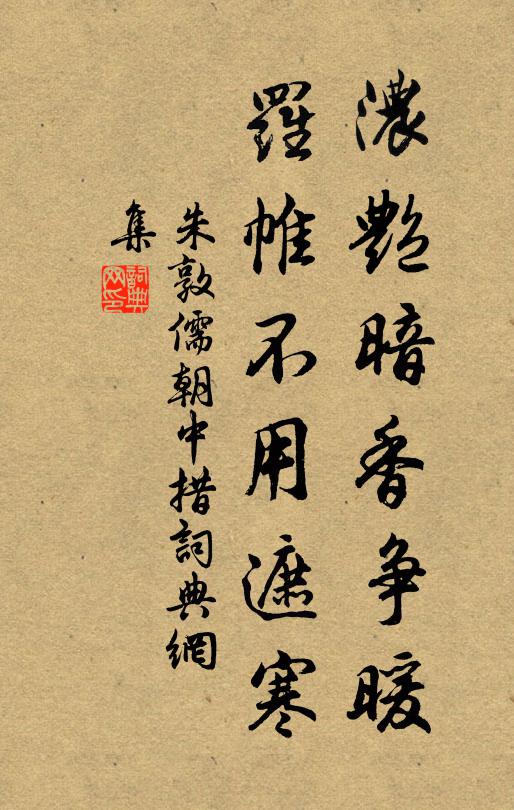 濃艷暗香爭暖
羅帷不用遮寒
朱敦儒朝中措詞典網
集
詞典
网印